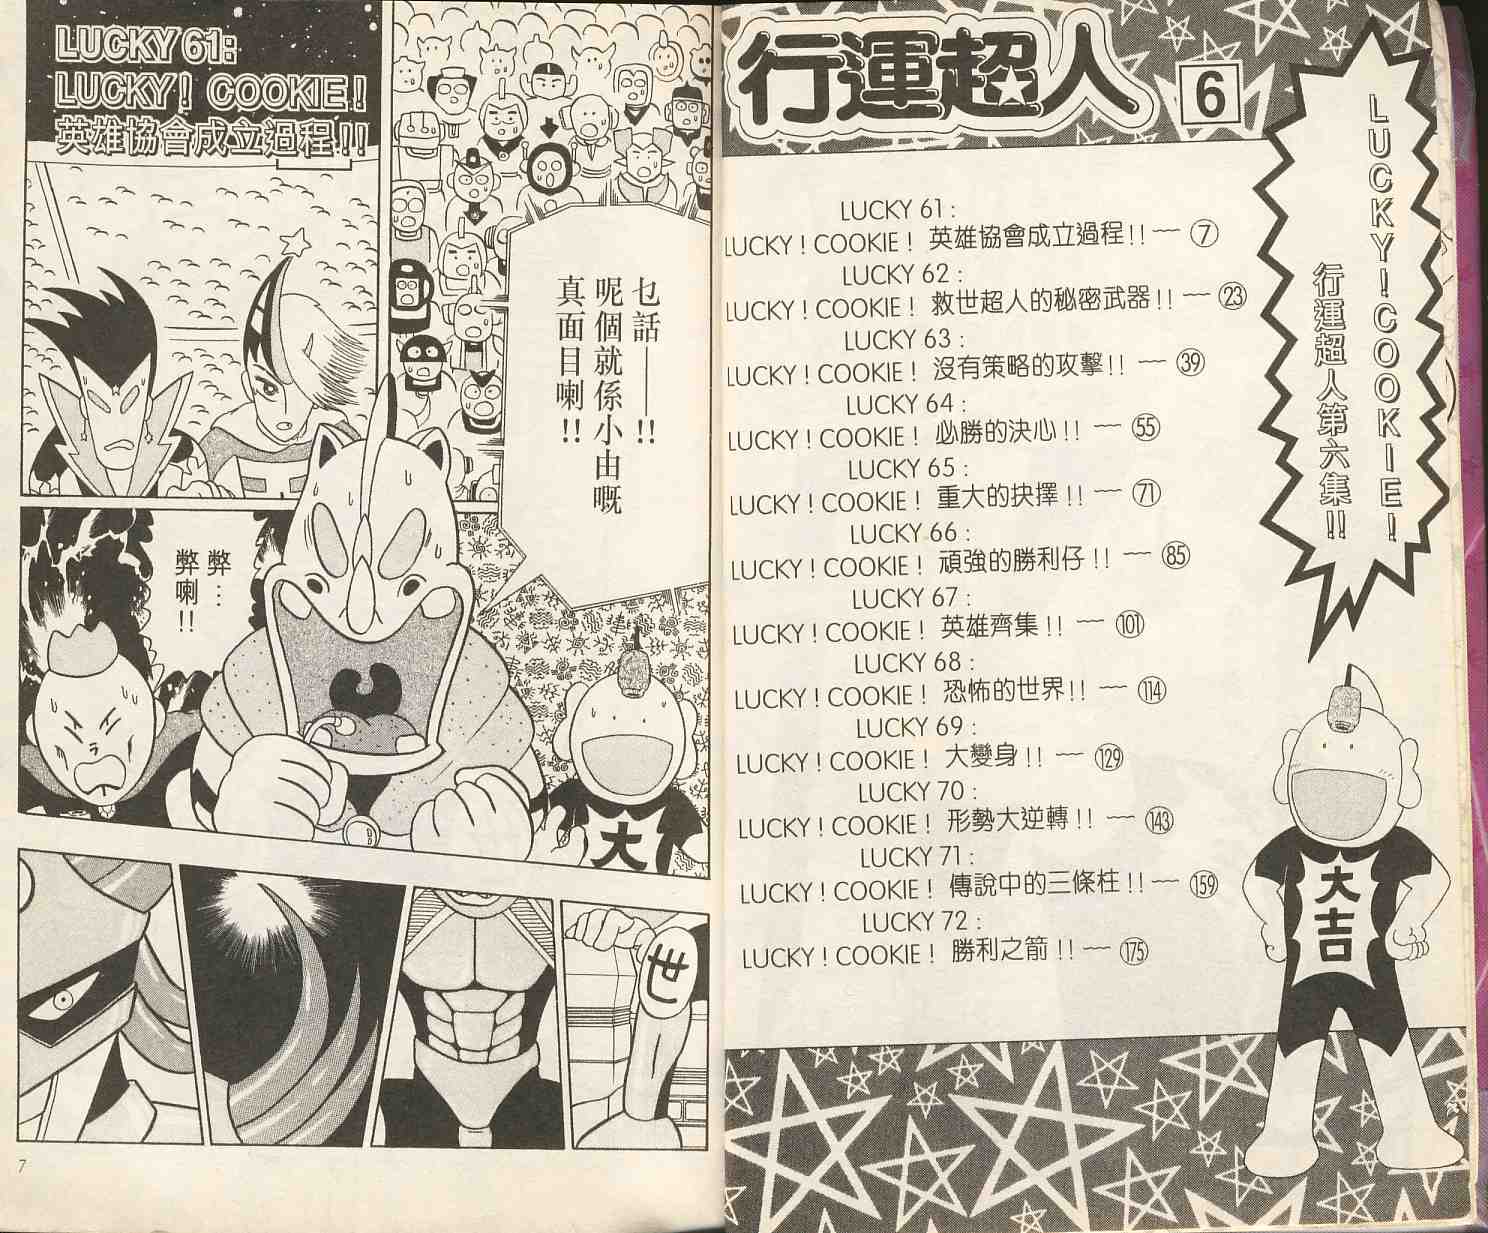 行運超人 6
LUCKY!COOKIE!
行運超人第六集!!
LUCKY 61:
LUCKY!COOKIE! 英雄協會成立過程!!~~ ⑦
LUCKY 62:
LUCKY!COOKIE! 救世超人的秘密武器!!~~ ㉓
LUCKY 63:
LUCKY!COOKIE! 沒有策略的攻擊!!~~ ㊴
LUCKY 64:
LUCKY!COOKIE! 必勝的決心!!~~ 55
LUCKY 65:
LUCKY!COOKIE! 重大的抉擇!!~~ 71
LUCKY 66:
LUCKY!COOKIE! 頑強的勝利仔!!~~ 85
LUCKY 67:
LUCKY!COOKIE! 英雄齊集!!~~ 101
LUCKY 68:
LUCKY!COOKIE! 恐怖的世界!!~~ 114
LUCKY 69:
LUCKY!COOKIE! 大變身!!~~ 129
LUCKY 70:
LUCKY!COOKIE! 形勢大逆轉!!~~ 143
LUCKY 71:
LUCKY!COOKIE! 傳說中的三條柱!!~~ 159
LUCKY 72:
LUCKY!COOKIE! 勝利之箭!!~~ 175
大吉
LUCKY 61:
LUCKY! COOKIE!
英雄協會成立過程!!
乜話——!!
呢個就係小由嘅
真面目喇!!
弊…
弊喇!!
大
世
7